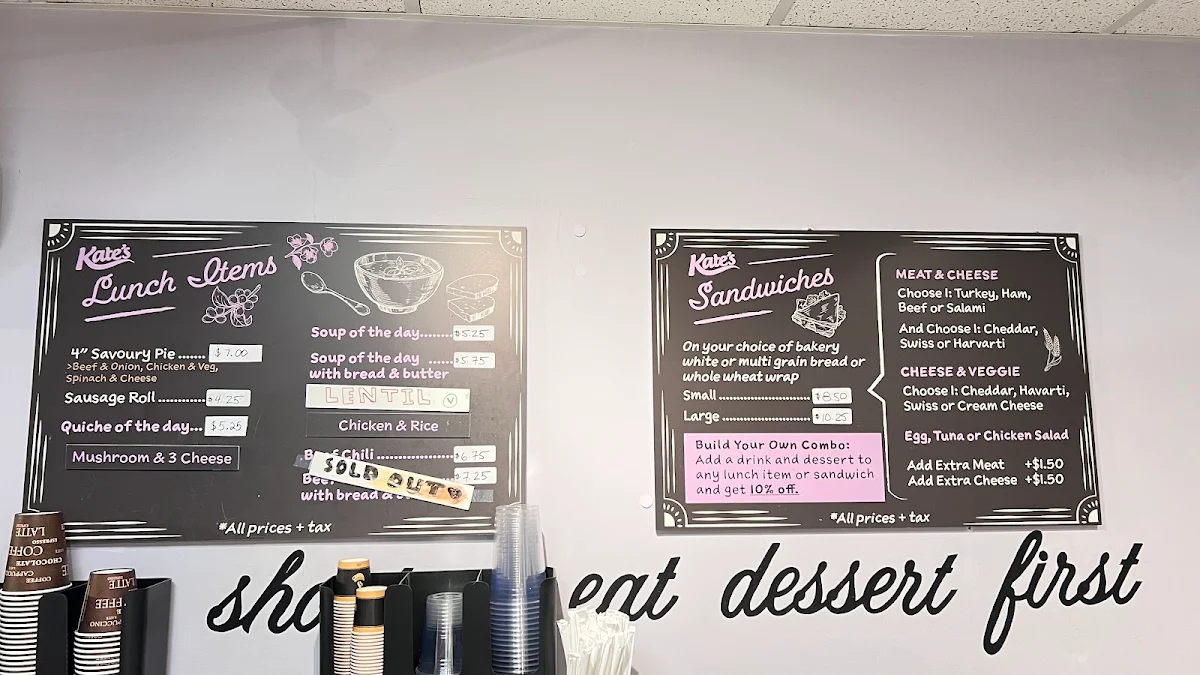 Kate's
Lunch Items
4" Savoury Pie ....... $7.00
>Beef & Onion, Chicken & Veg,
Spinach & Cheese
Sausage Roll ............ $4.25
Quiche of the day... $5.25
Mushroom & 3 Cheese
Soup of the day........ $5.25
Soup of the day ...... $5.75
with bread & butter
LENTIL V
Chicken & Rice
Chili ............ $6.75
SOLD OUT
$7.25
with bread &
*All prices + tax
Kate's
Sandwiches
On your choice of bakery
white or multi grain bread or
whole wheat wrap
Small ........................ $8.50
Large ....................... $10.25
Build Your Own Combo:
Add a drink and dessert to
any lunch item or sandwich
and get 10% off.
MEAT & CHEESE
Choose 1: Turkey, Ham,
Beef or Salami
And Choose 1: Cheddar,
Swiss or Harvarti
CHEESE & VEGGIE
Choose 1: Cheddar, Havarti,
Swiss or Cream Cheese
Egg, Tuna or Chicken Salad
Add Extra Meat +$1.50
Add Extra Cheese +$1.50
*All prices + tax
eat dessert first
LATTE
ESPRESSO
COFFEE
CHOCOLATE
LATTE